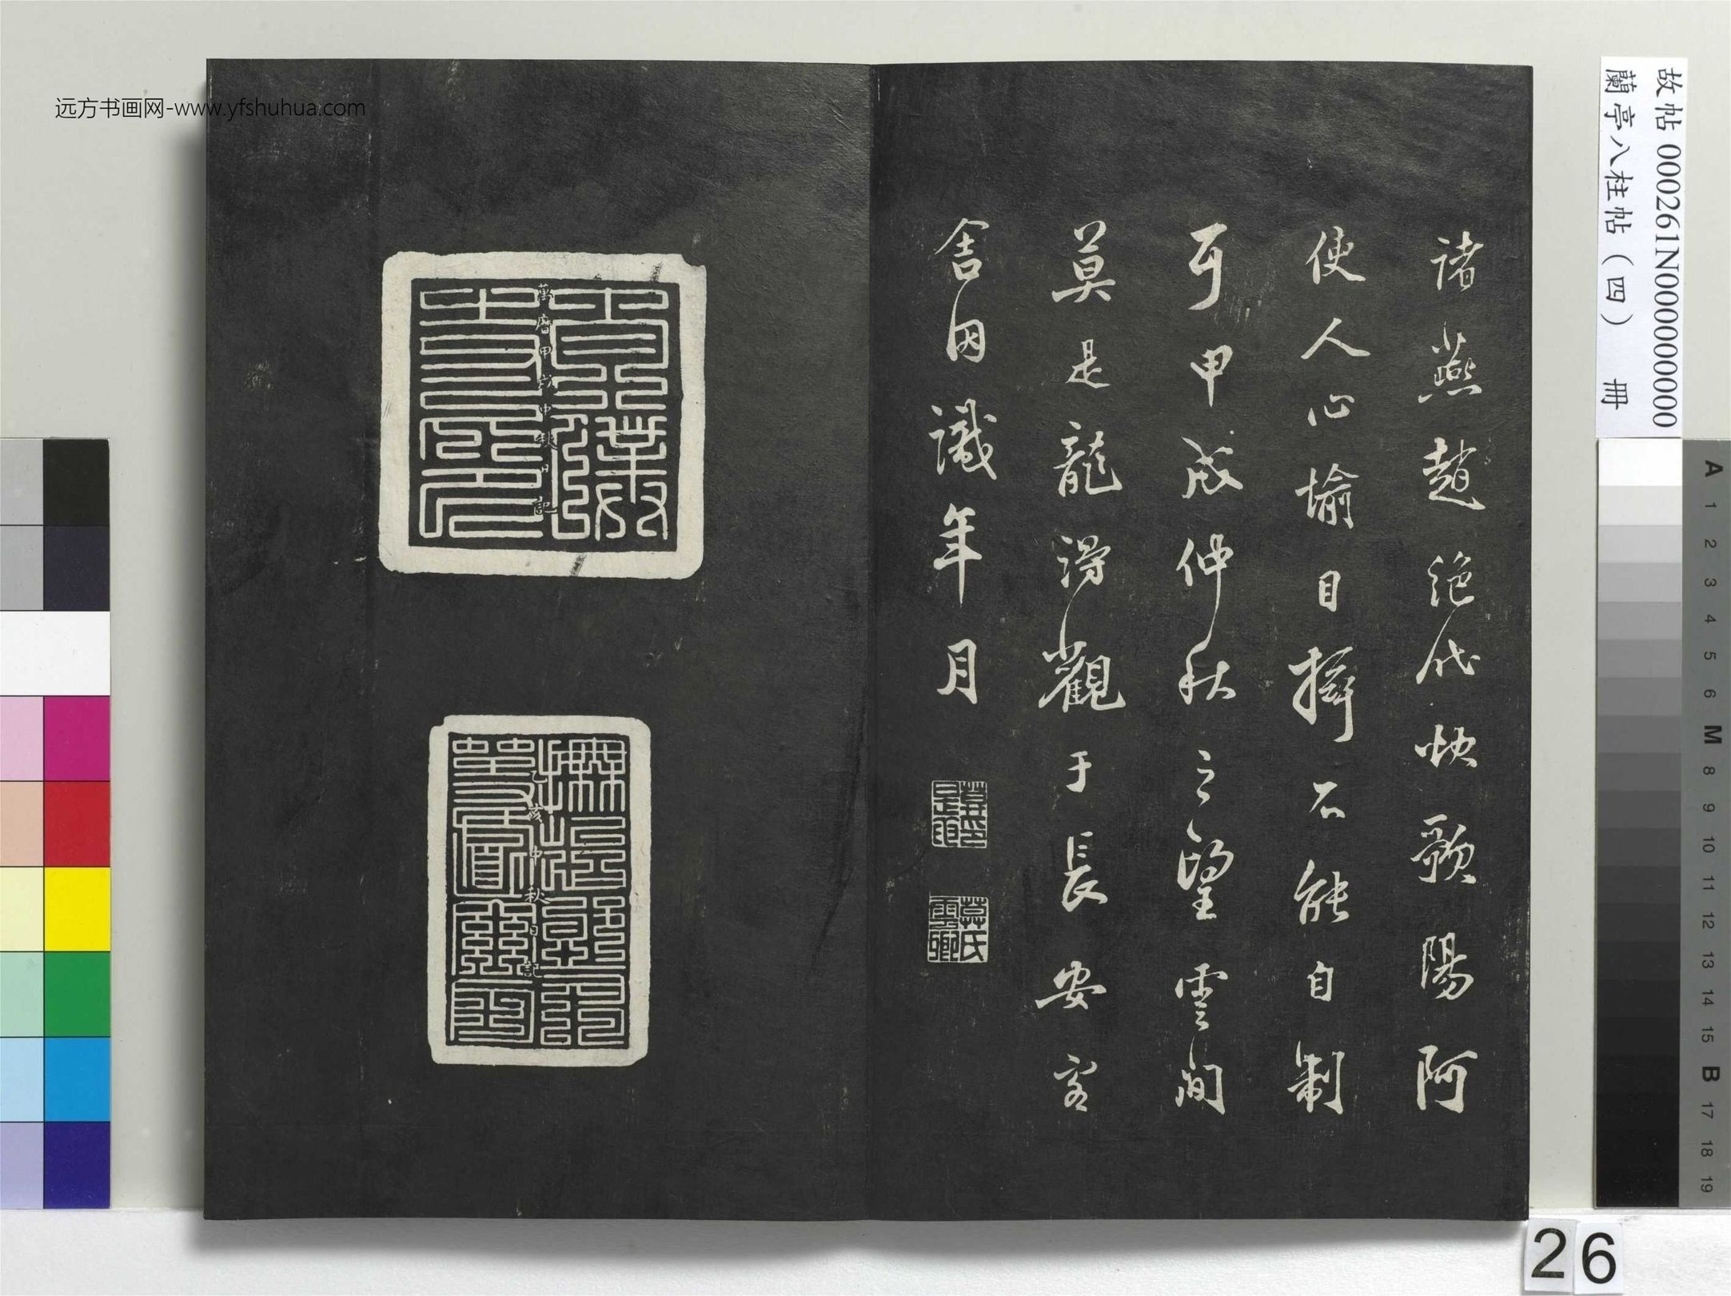 远方书画网-www.yfshuhua.com
故帖 000261N000000000
蘭亭八柱帖（四） 冊
諸燕趙絕代怏歌陽阿
使人心愉目擽不能自制
可甲戌仲秋之望雲間
莫是龍得觀于長安客
舍因識年月
莫是龍印
莫氏雲卿
萬曆甲戌中秋日記
乙亥中秋日記
A 1 2 3 4 5 6 M 8 9 10 11 12 13 14 15 B 17 18 19
26